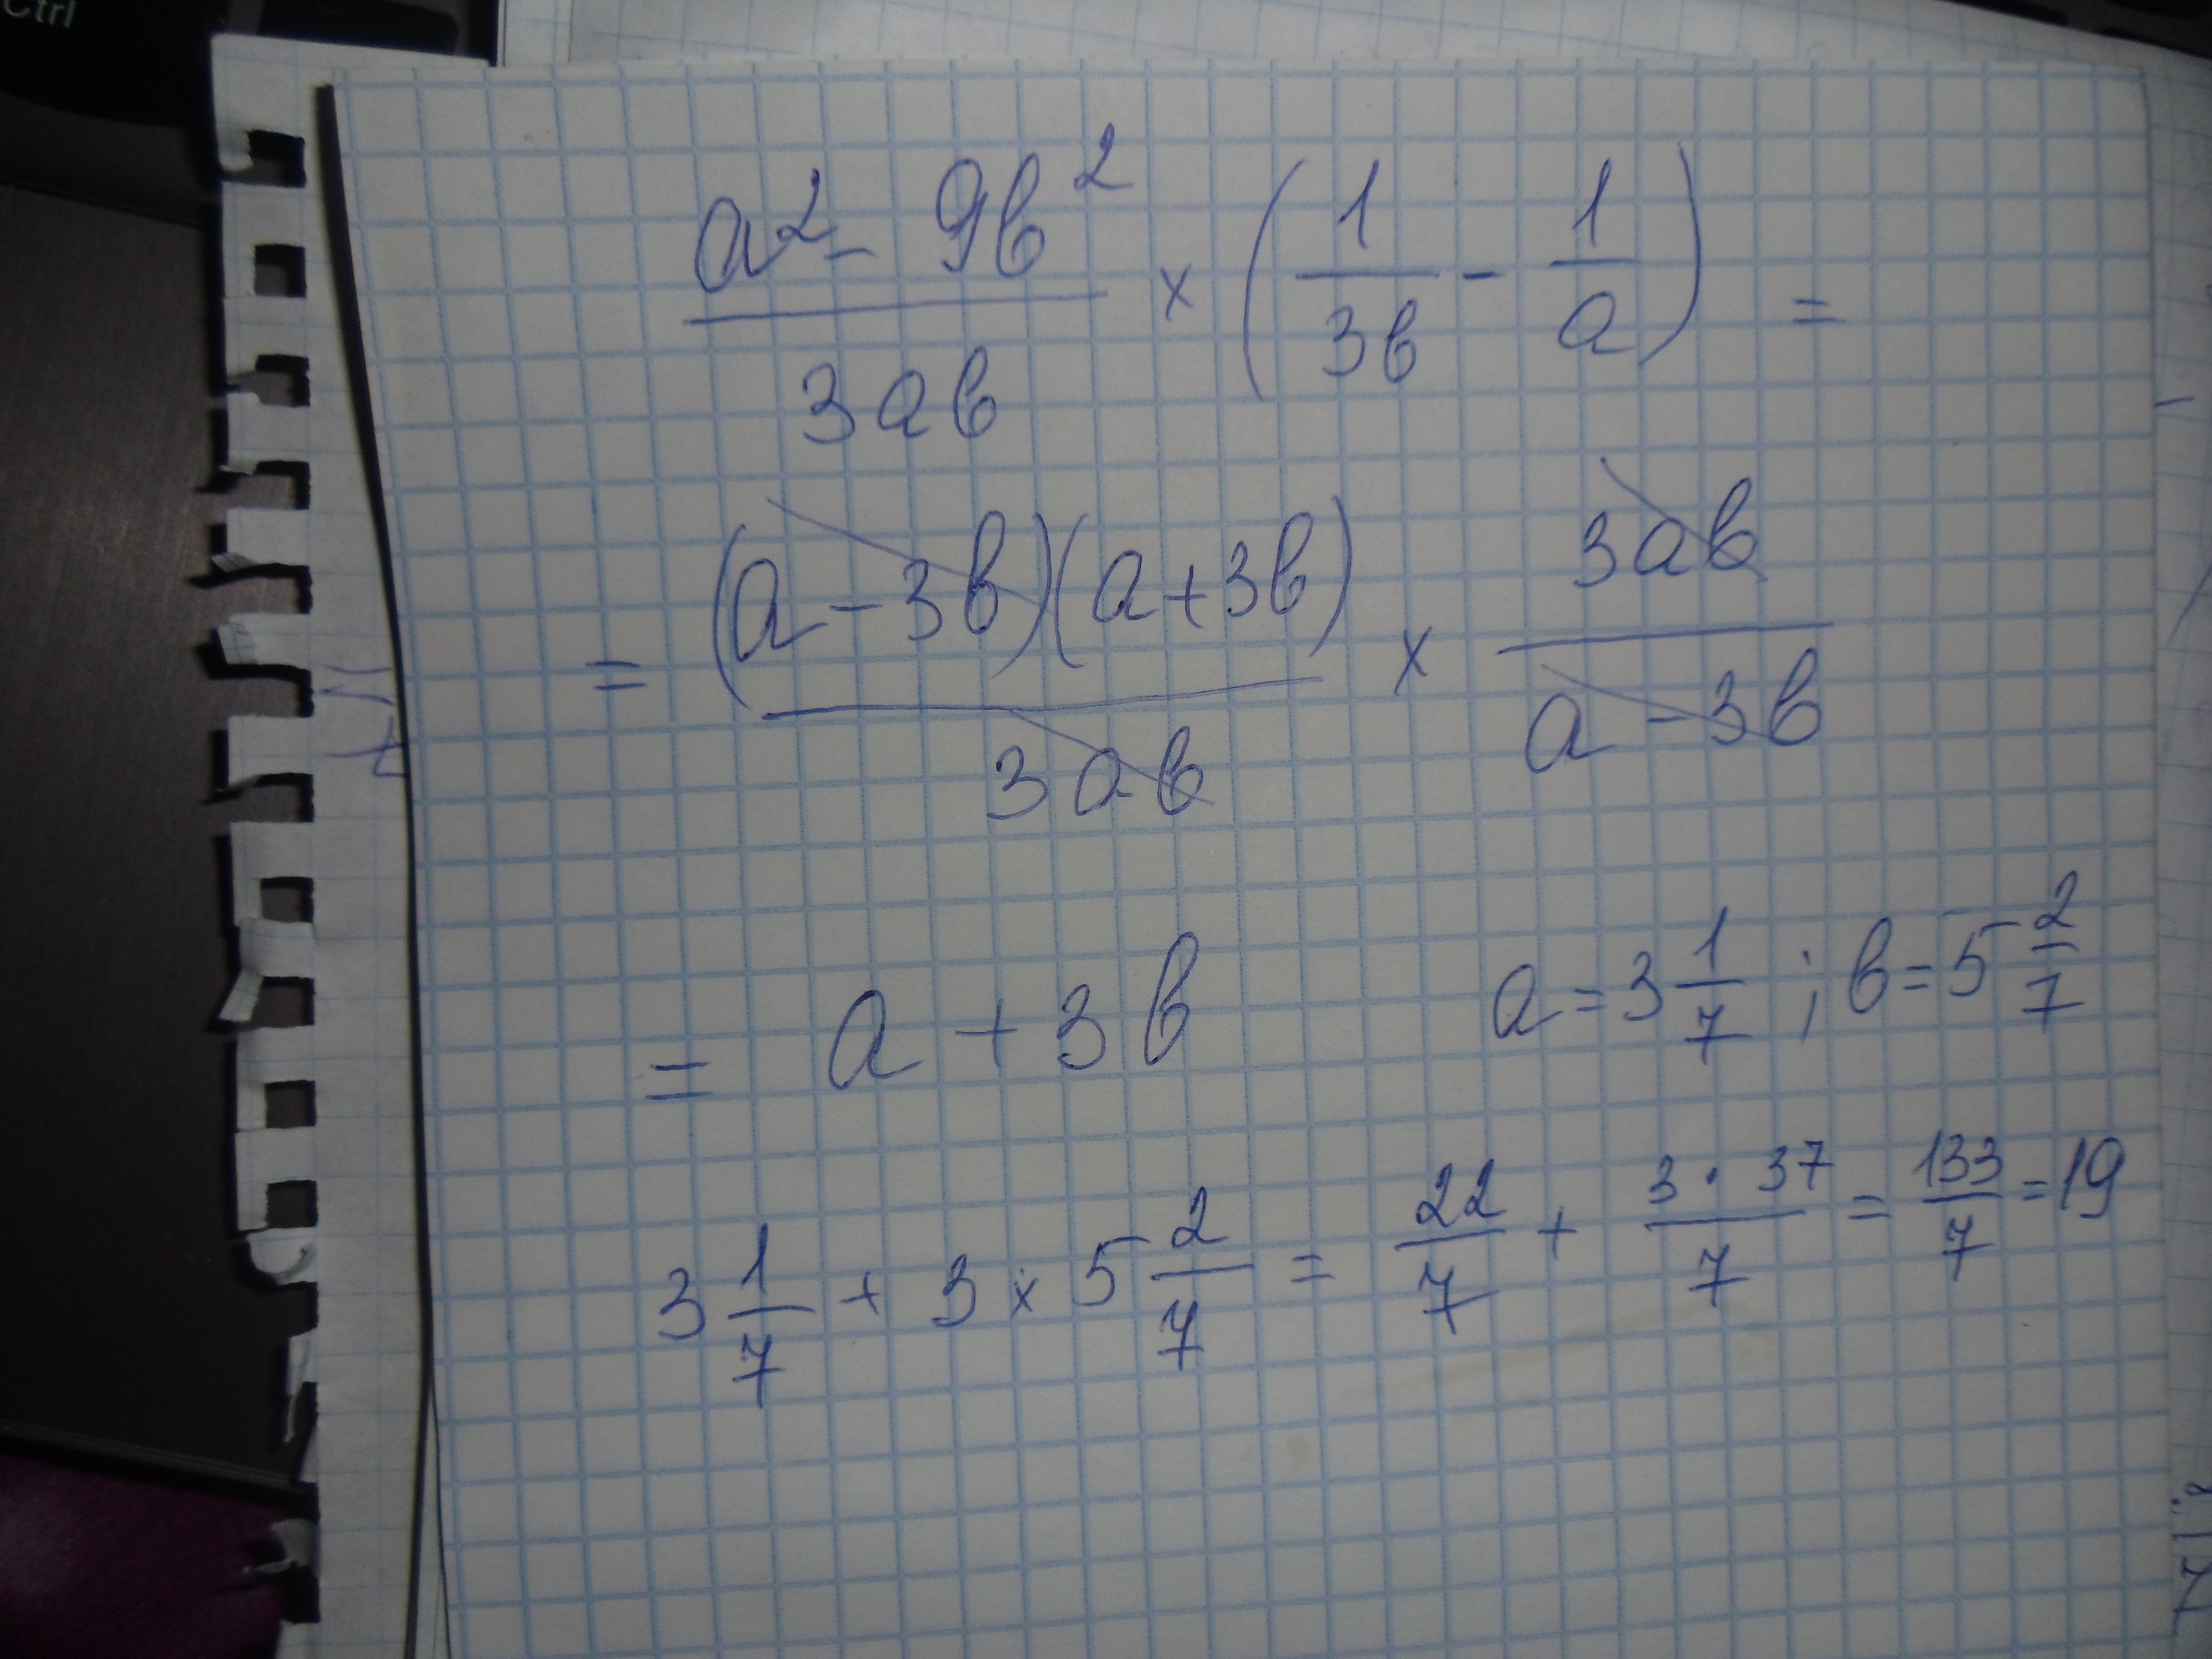 Ctrl
a² - 9b² / 3ab × (1/3b - 1/a) =
= (a - 3b)(a + 3b) / 3ab × 3ab / a - 3b
= a + 3b    a = 3 1/7 ; b = 5 2/7
3 1/7 + 3 × 5 2/7 = 22/7 + 3 · 37 / 7 = 133/7 = 19